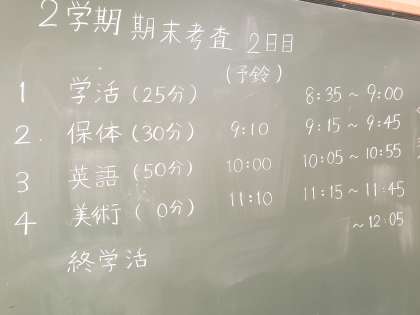 2学期 期末考査 2日目
(予鈴)
1 学活 (25分) 8:35 ~ 9:00
2. 保体 (30分) 9:10 9:15 ~ 9:45
3 英語 (50分) 10:00 10:05 ~ 10:55
4 美術 ( 0分) 11:10 11:15 ~ 11:45
~ 12:05
終学活